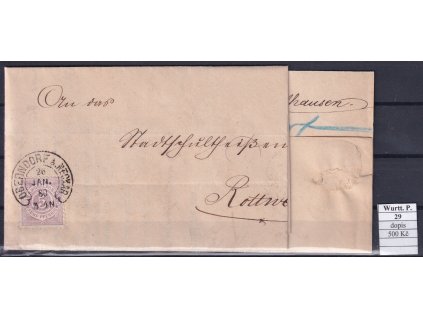 An das
Stadtschultheißen
Rottw
hausen.
OBERNDORF A. NECKAR
26
JAN.
80
Wurtt. P.
29
dopis
500 Kč